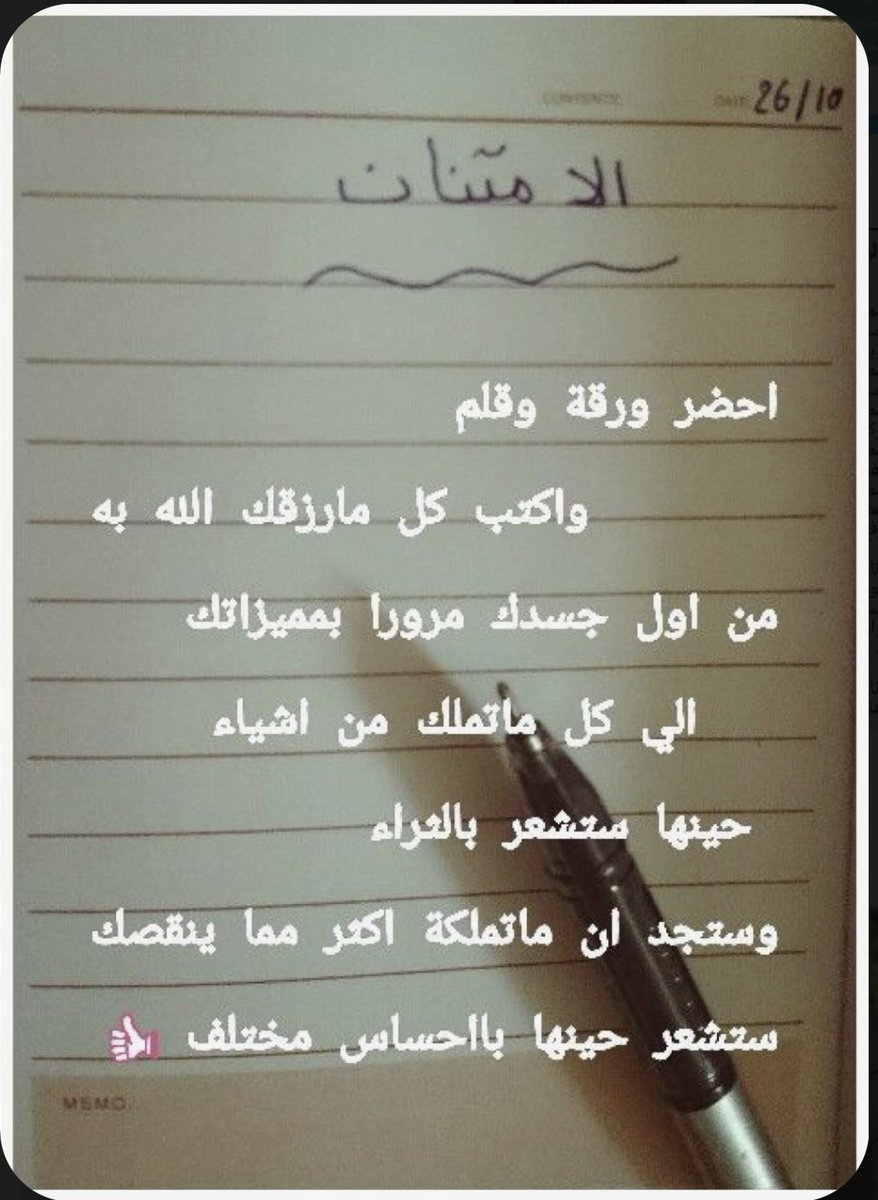 CONTENTS
DATE 26/10
الامتنان
احضر ورقة وقلم
واكتب كل مارزقك الله به
من اول جسدك مرورا بمميزاتك
الي كل ماتملك من اشياء
حينها ستشعر بالثراء
وستجد ان ماتملكة اكثر مما ينقصك
ستشعر حينها بااحساس مختلف
MEMO